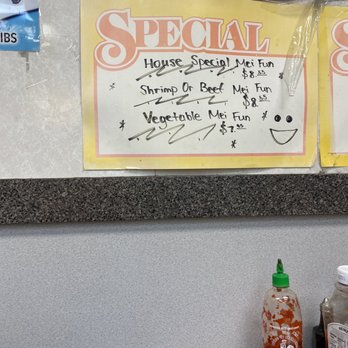 IBS
SPECIAL
House Special Mei Fun
$8.95
Shrimp Or Beef Mei Fun
Vegetable Mei Fun